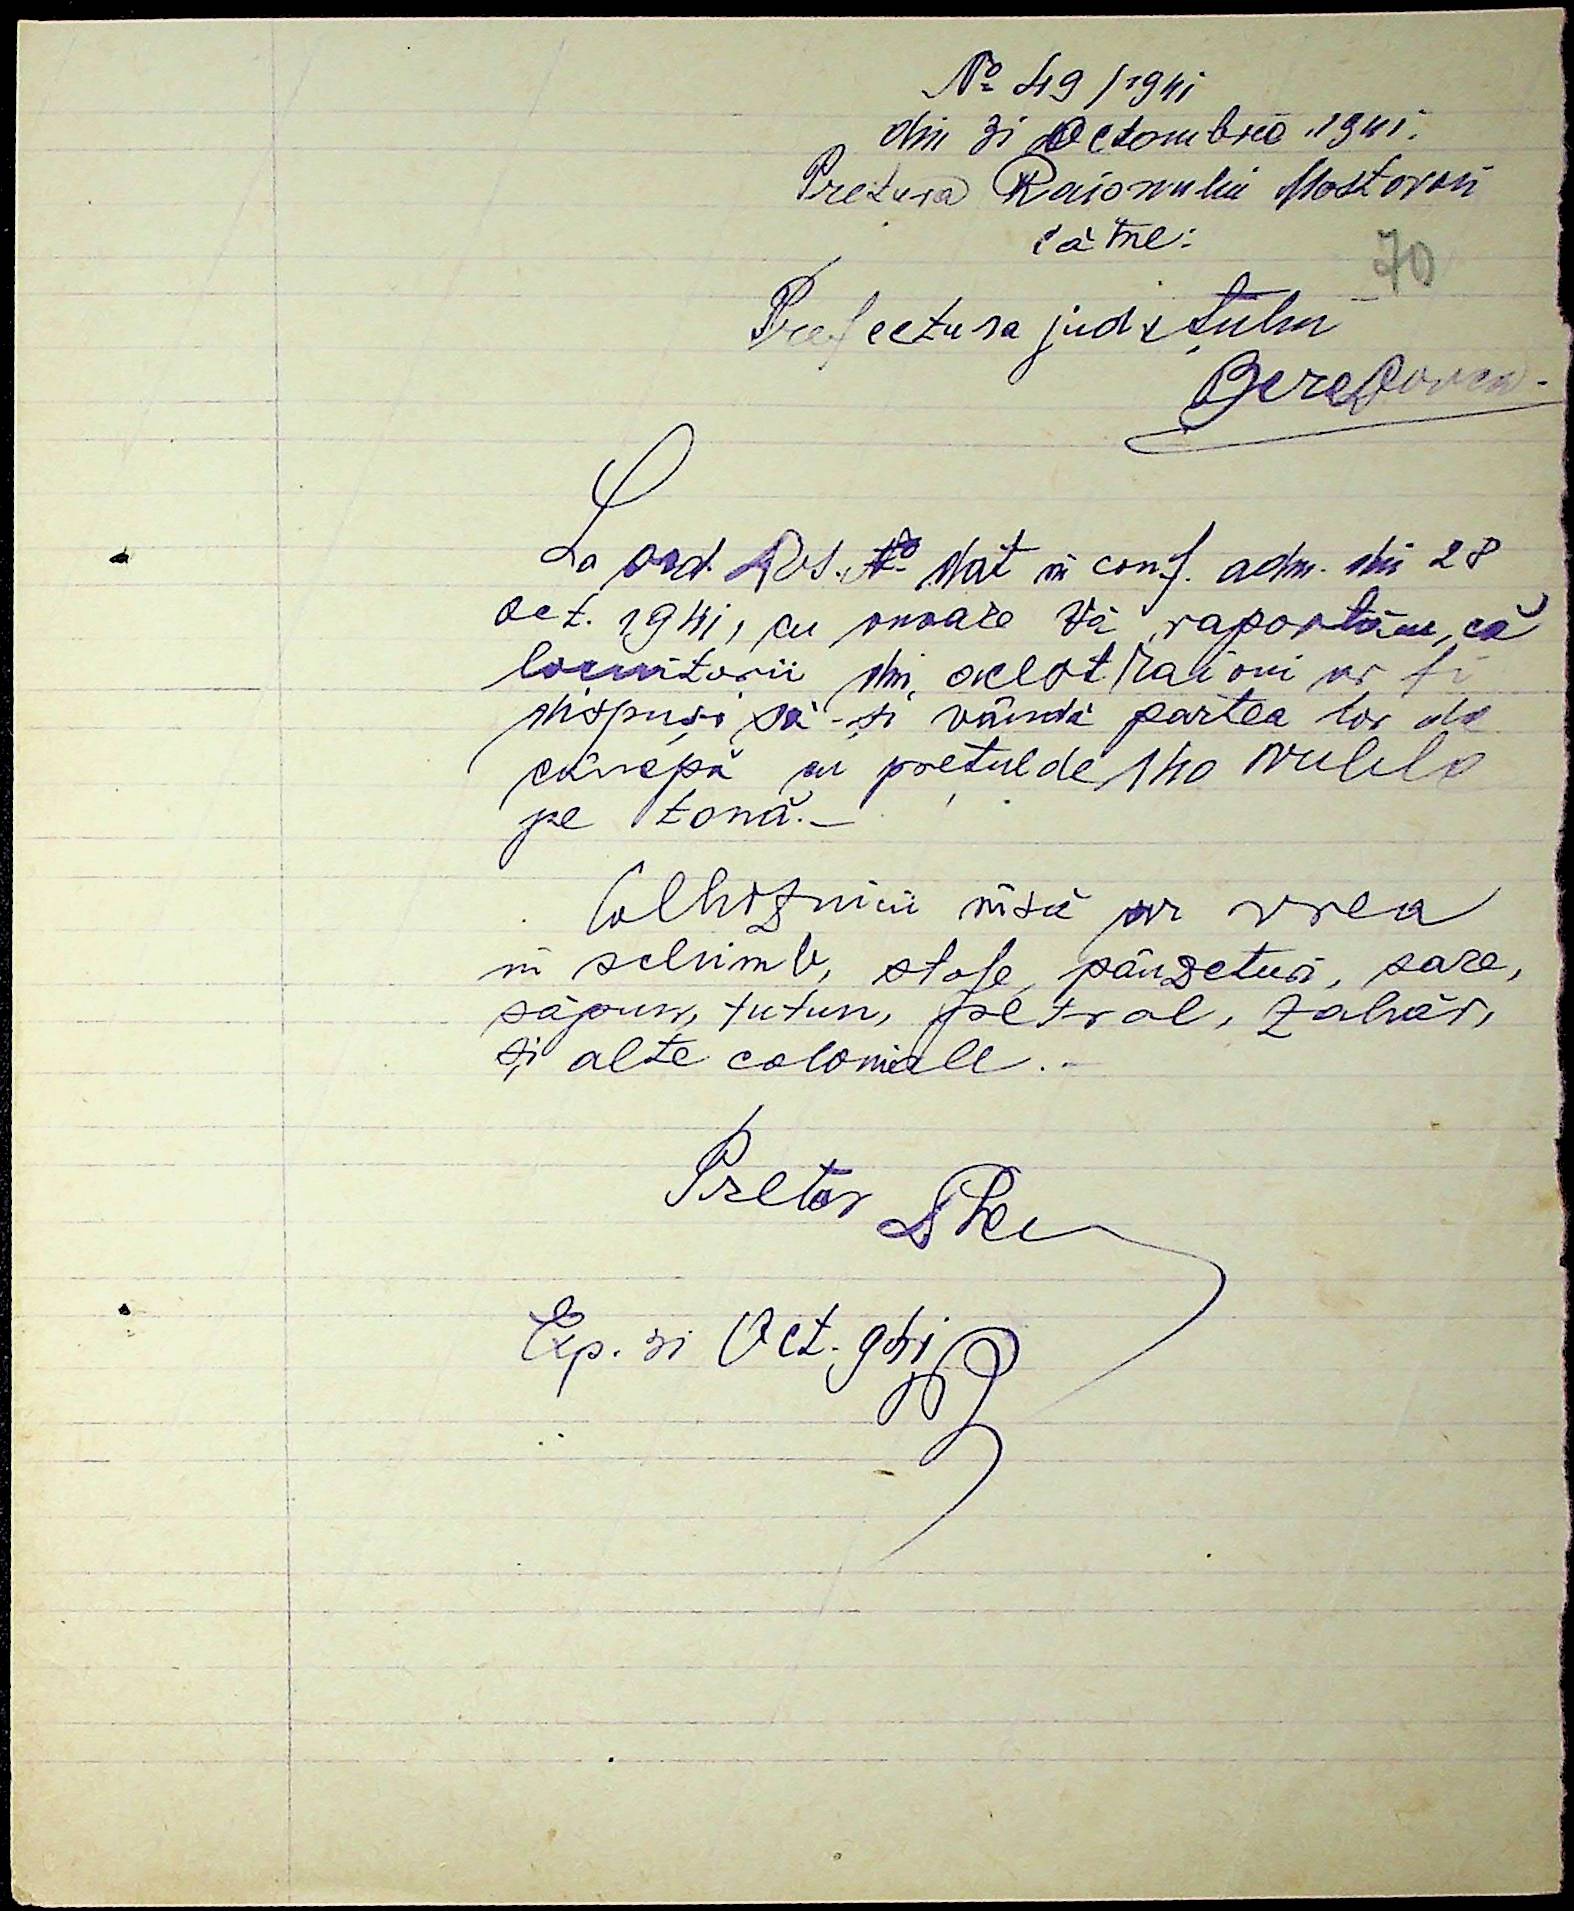 No 49/1941
din 31 Octombrie 1941.
Pretura Raionului Mostovoi
către:
70
Prefectura județului
Berezovca.
La ord. Dvs. No dat în conf. adm. din 28
oct. 1941, cu onoare vă raportăm, că
locuitorii din acest raion ar fi
dispuși să-și vândă partea lor de
cânepă cu prețul de 140 ruble
pe tonă.-
Colhoznicii însă ar vrea
în schimb, stofe, pânzeturi, sare,
săpun, tutun, petrol, zahăr,
și alte coloniale.-
Pretor
Exp. 31 Oct. 941